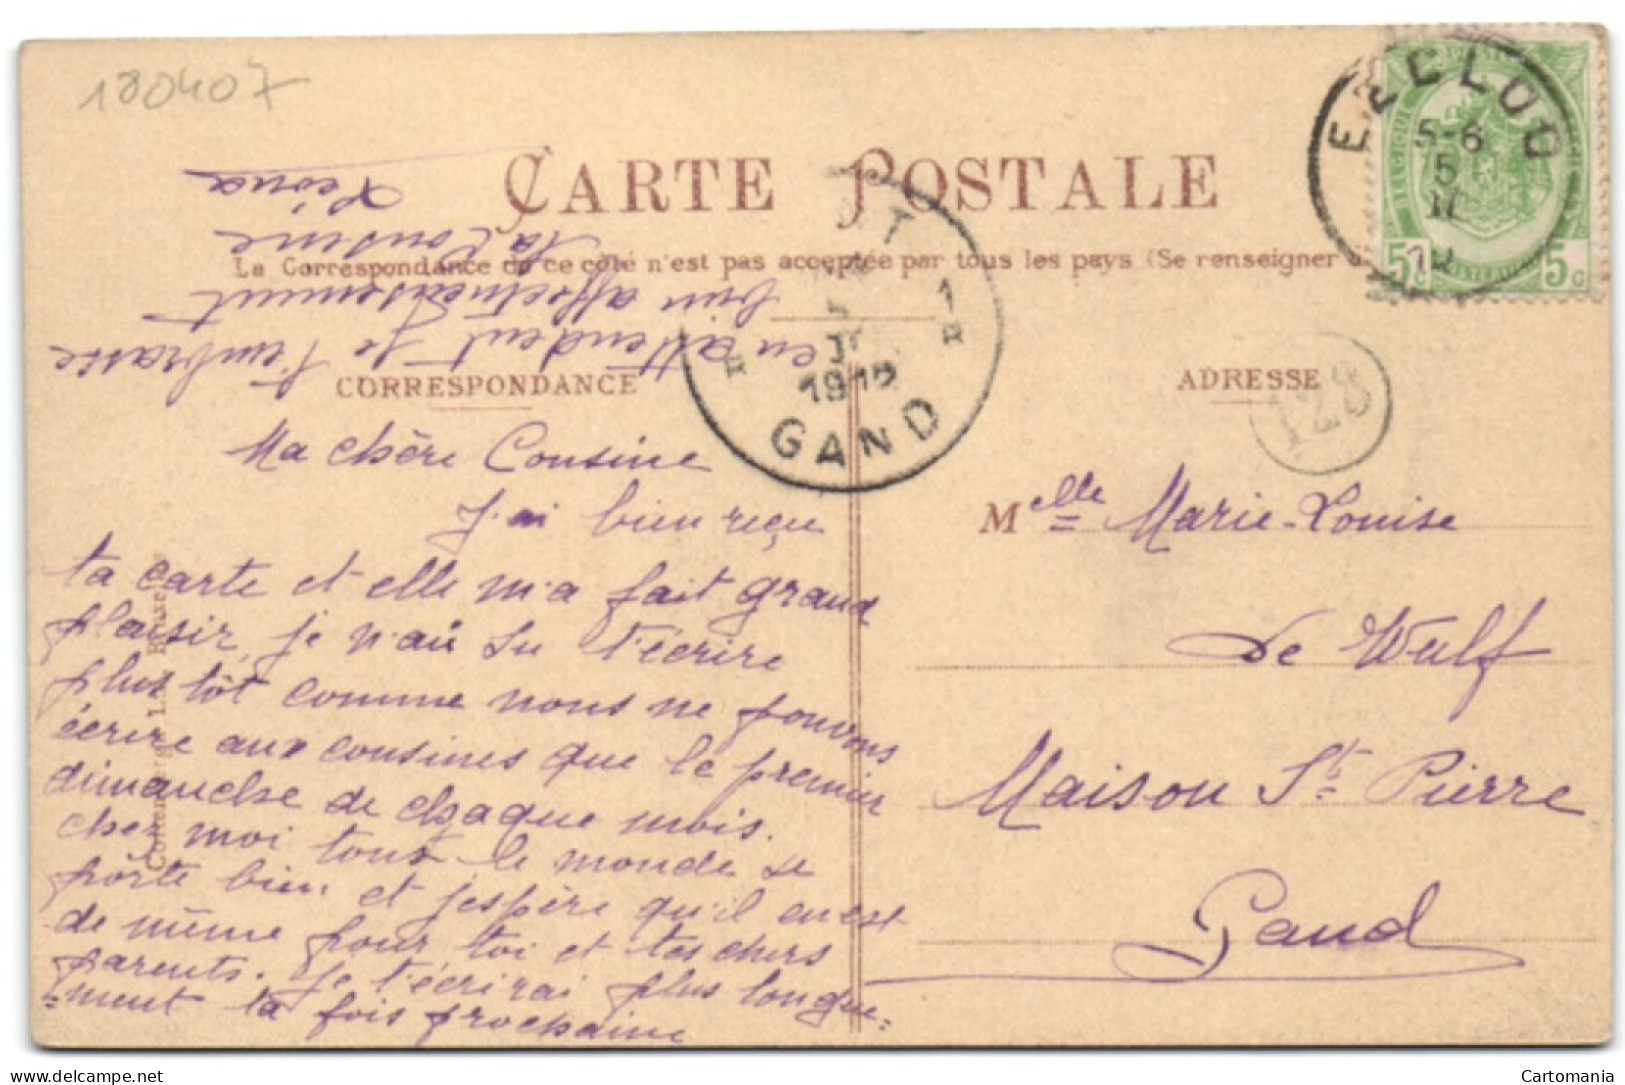 180407
CARTE POSTALE
La Correspondance de ce côté n'est pas acceptée par tous les pays (Se renseigner
EECLOO
5-6
5
II
12
BELGIQUE
5c
5c
1
R
1912
GAND
128
CORRESPONDANCE
ADRESSE
Ma chère Cousine
J'ai bien reçu
ta carte et elle m'a fait grand
plaisir, je n'ai su t'écrire
plus tôt comme nous ne pouvons
écrire aux cousines que le premier
dimanche de chaque mois.
chez moi tout le monde se
pôrte bien et j'espère qu'il en est
de même pour toi et tes chers
parents. Je t'écrirai plus longue-
-ment la fois prochaine
en attendent je t'embrasse
bien affectueusement
ta Cousine
Léona
Melle Marie-Louise
De Wulf
Maison St Pierre
Gand
Cartomania
www.delcampe.net